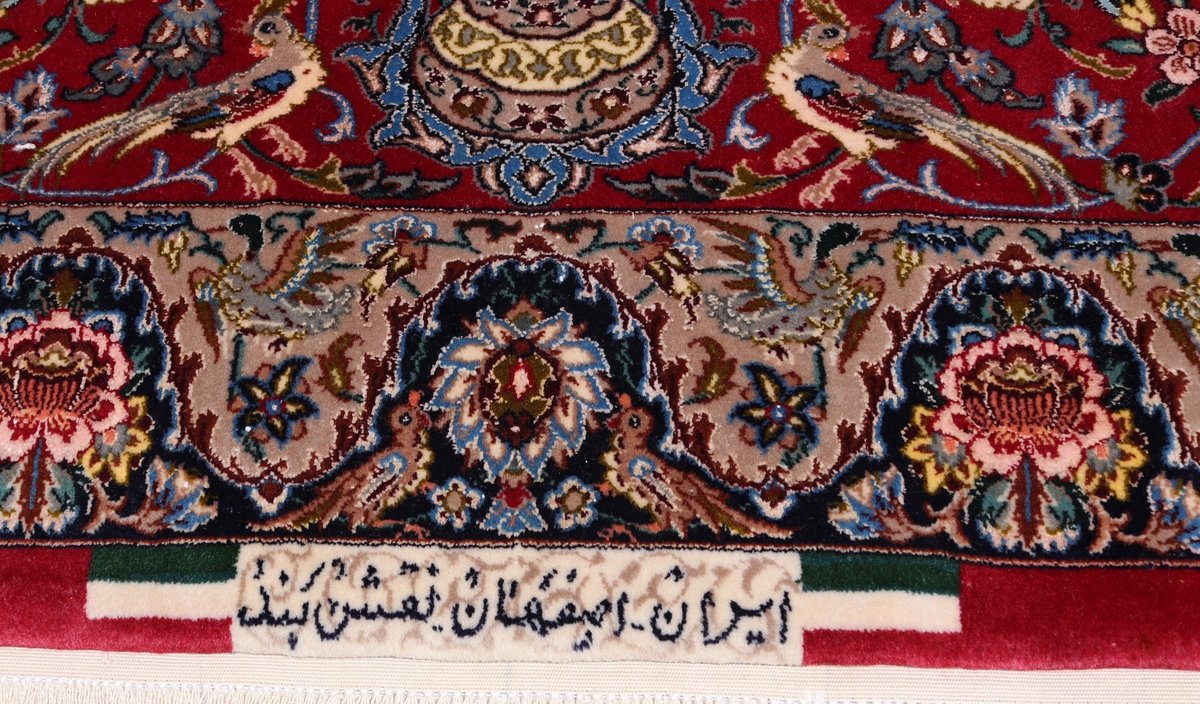 ایران - اصفهان نقشن بند